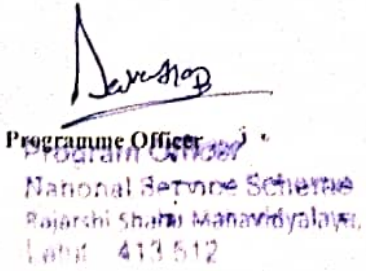 Programme Officer
Program Officer
National Service Scheme
Rajarshi Shahu Mahavidyalaya,
Latur 413 512